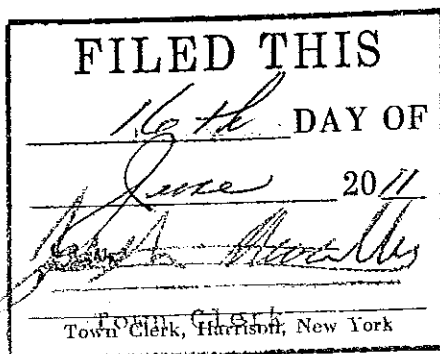 FILED THIS
16th DAY OF
June 2011
Town Clerk
Town Clerk, Harrison, New York